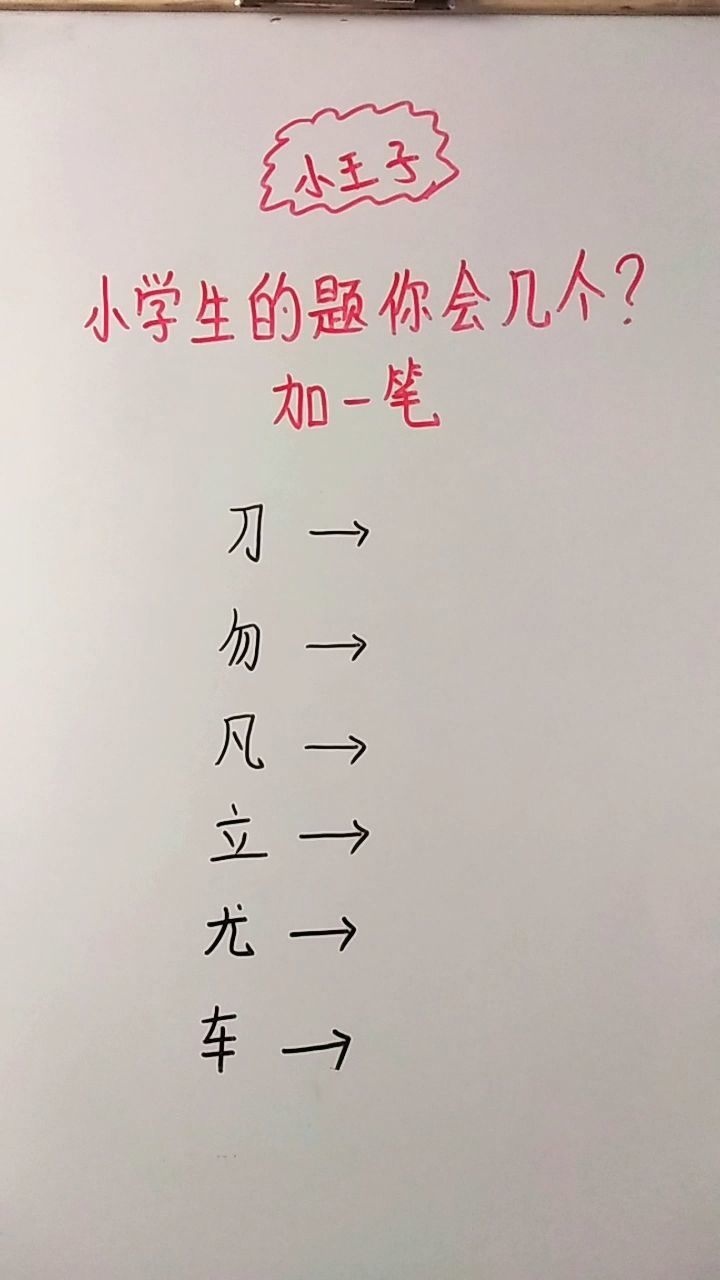 小王子
小学生的题你会几个?
加一笔
刀 →
勿 →
凡 →
立 →
尤 →
车 →